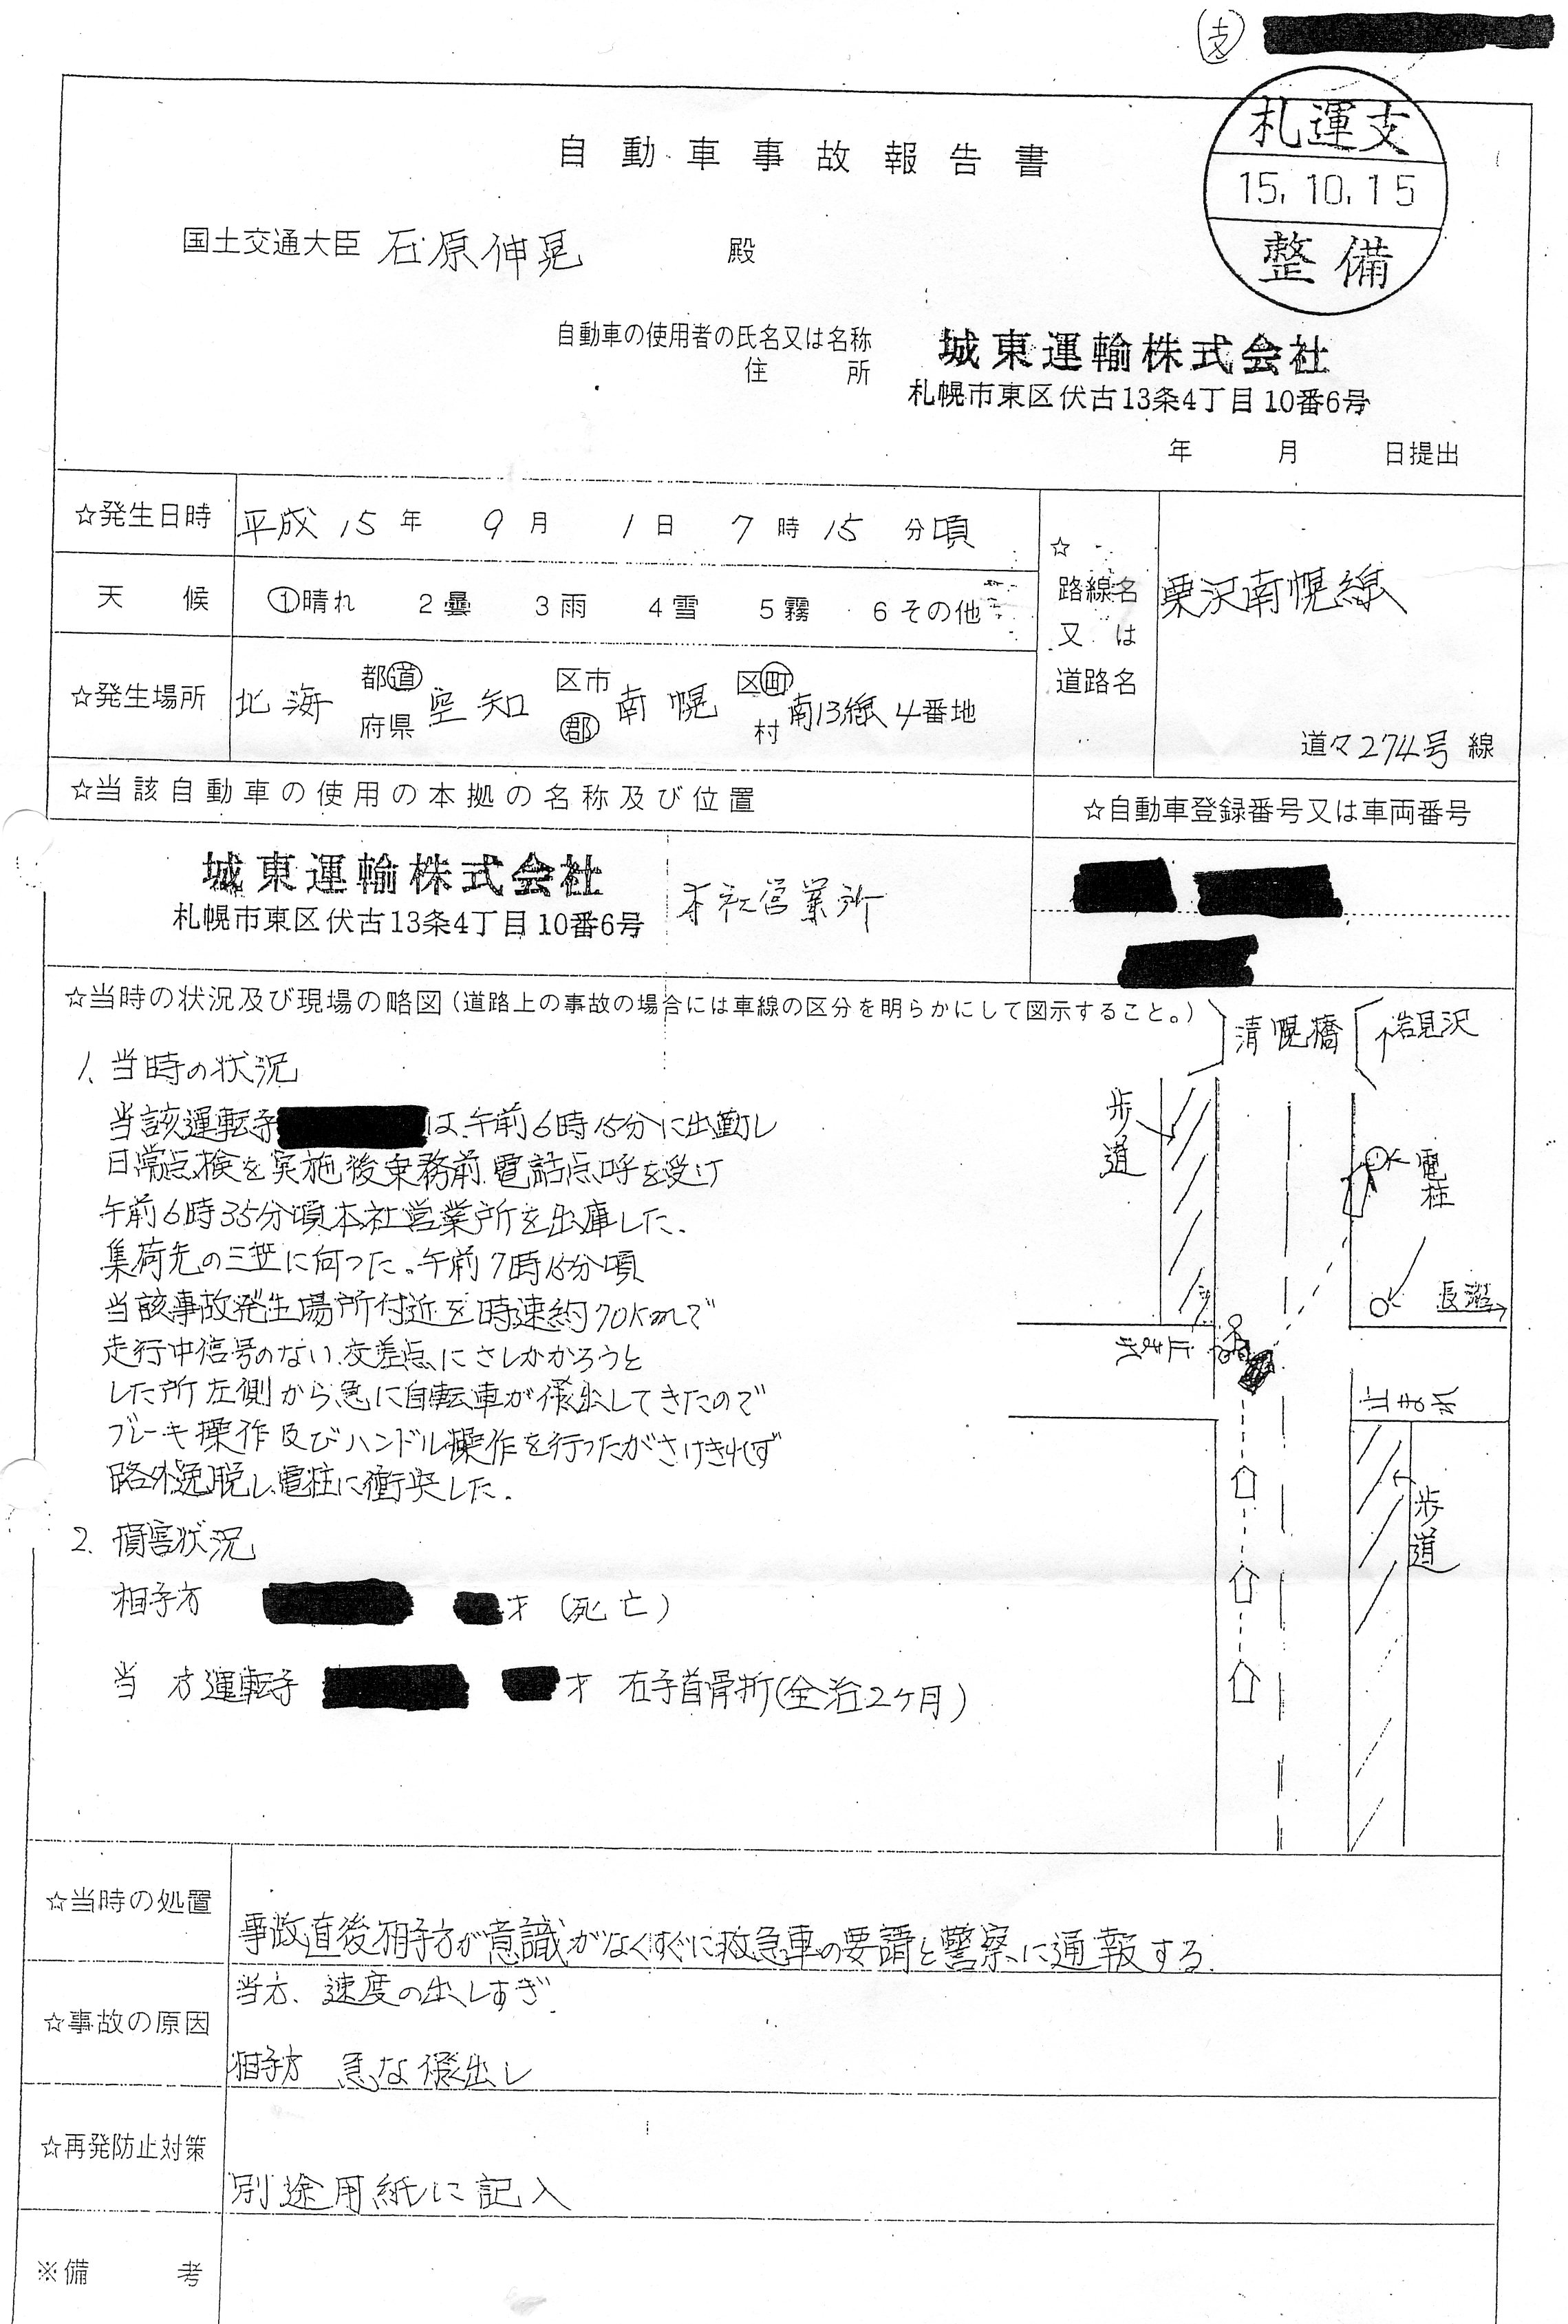 支
札運支
15.10.15
整備
自動車事故報告書
国土交通大臣 石原伸晃 殿
自動車の使用者の氏名又は名称 城東運輸株式会社
住所 札幌市東区伏古13条4丁目10番6号
年 月 日提出
☆発生日時 平成15年 9月 1日 7時15分頃
天候 ①晴れ 2曇 3雨 4雪 5霧 6その他
☆路線名又は道路名 栗沢南幌線
道々274号線
☆発生場所 北海 都道府県 空知 区市郡 南幌 区町村 南13線4番地
☆当該自動車の使用の本拠の名称及び位置
☆自動車登録番号又は車両番号
城東運輸株式会社 本社営業所
札幌市東区伏古13条4丁目10番6号
☆当時の状況及び現場の略図(道路上の事故の場合には車線の区分を明らかにして図示すること。)
1、当時の状況
当該運転手 は、午前6時15分に出勤し
日常点検を実施後乗務前、電話点呼を受け
午前6時35分頃本社営業所を出庫した.
集荷先の三笠に向った。午前7時15分頃
当該事故発生場所付近を時速約70kmで
走行中信号のない、交差点にさしかかろうと
した所左側から急に自転車が飛出してきたので
ブレーキ操作及びハンドル操作を行ったがさけきれず
路外逸脱し、電柱に衝突した.
2. 損害状況
相手方 才(死亡)
当方運転手 才 右手首骨折(全治2ヶ月)
清幌橋
↑岩見沢
歩道
電柱
長沼→
止まれ
止まれ
歩道
☆当時の処置 事故直後相手方が意識がなくすぐに救急車の要請と警察に通報する.
☆事故の原因 当方、速度の出しすぎ.
相手方 急な飛出し
☆再発防止対策 別途用紙に記入
※備考